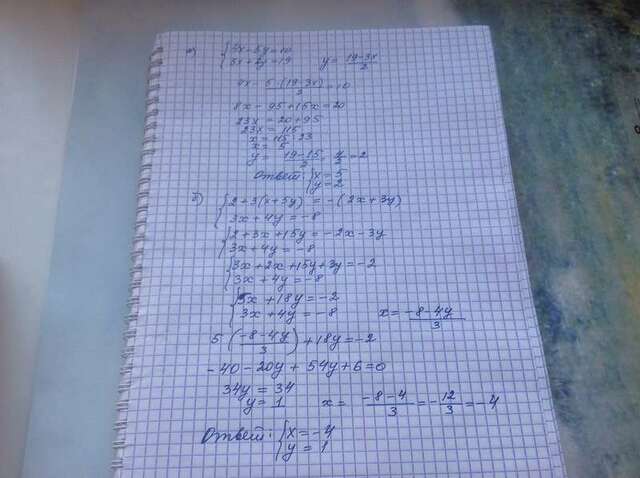 а) {4x-5y=10
{3x+2y=19 y= 19-3x/2
4x- 5·(19-3x)/2=10
8x-95+15x=20
23x=20+95
23x=115
x=115:23
x=5
y= 19-15/2= 4/2=2
Ответ: {x=5
{y=2
б) {2+3(x+5y)=-(2x+3y)
{3x+4y=-8
{2+3x+15y=-2x-3y
{3x+4y=-8
{3x+2x+15y+3y=-2
{3x+4y=-8
{5x+18y=-2
{3x+4y=-8 x= -8-4y/3
5(-8-4y/3)+18y=-2
-40-20y+54y+6=0
34y=34
y=1 x= -8-4/3=-12/3=-4
Ответ: {x=-4
{y=1